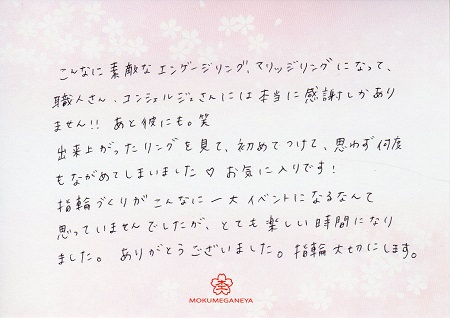 こんなに素敵なエンゲージリング、マリッジリングになって、
職人さん、コンシェルジュさんには本当に感謝しかあり
ません!! あと彼にも。笑
出来上がったリングを見て、初めてつけて、思わず何度
もながめてしまいました♡ お気に入りです!
指輪づくりがこんなに一大イベントになるなんて
思っていませんでしたが、とても楽しい時間になり
ました。ありがとうございました。指輪大切にします。
MOKUMEGANEYA